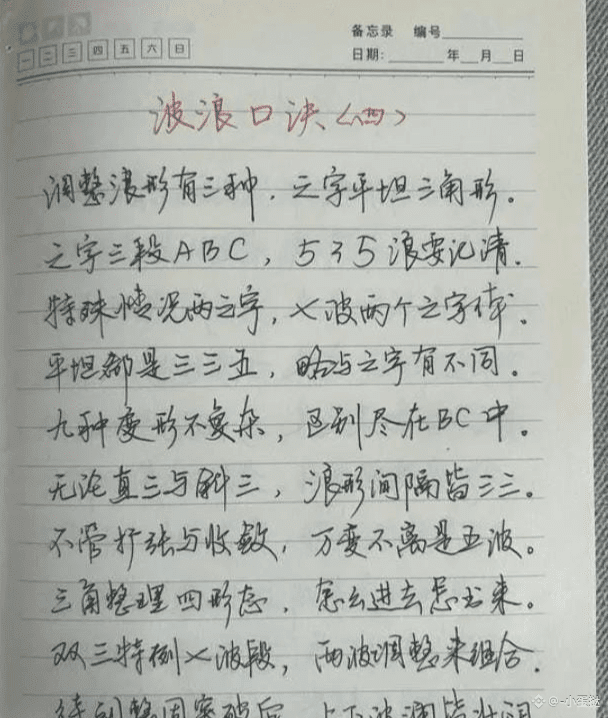 备忘录 编号
一 二 三 四 五 六 日
日期: 年 月 日
波浪口诀〈四〉
调整浪形有三种，之字平坦三角形。
之字三段ABC，535浪要记清.
特殊情况两之字，X波两个之字体.
平坦都是三三五，略与之字有不同.
九种变形不复杂，区别尽在BC中。
无论直三与斜三，浪形间隔皆三三。
不管扩张与收敛，万变不离是五波。
三角整理四形态，怎么进去怎出来。
双三特例X波段，两波调整来组合.
小蛋挞